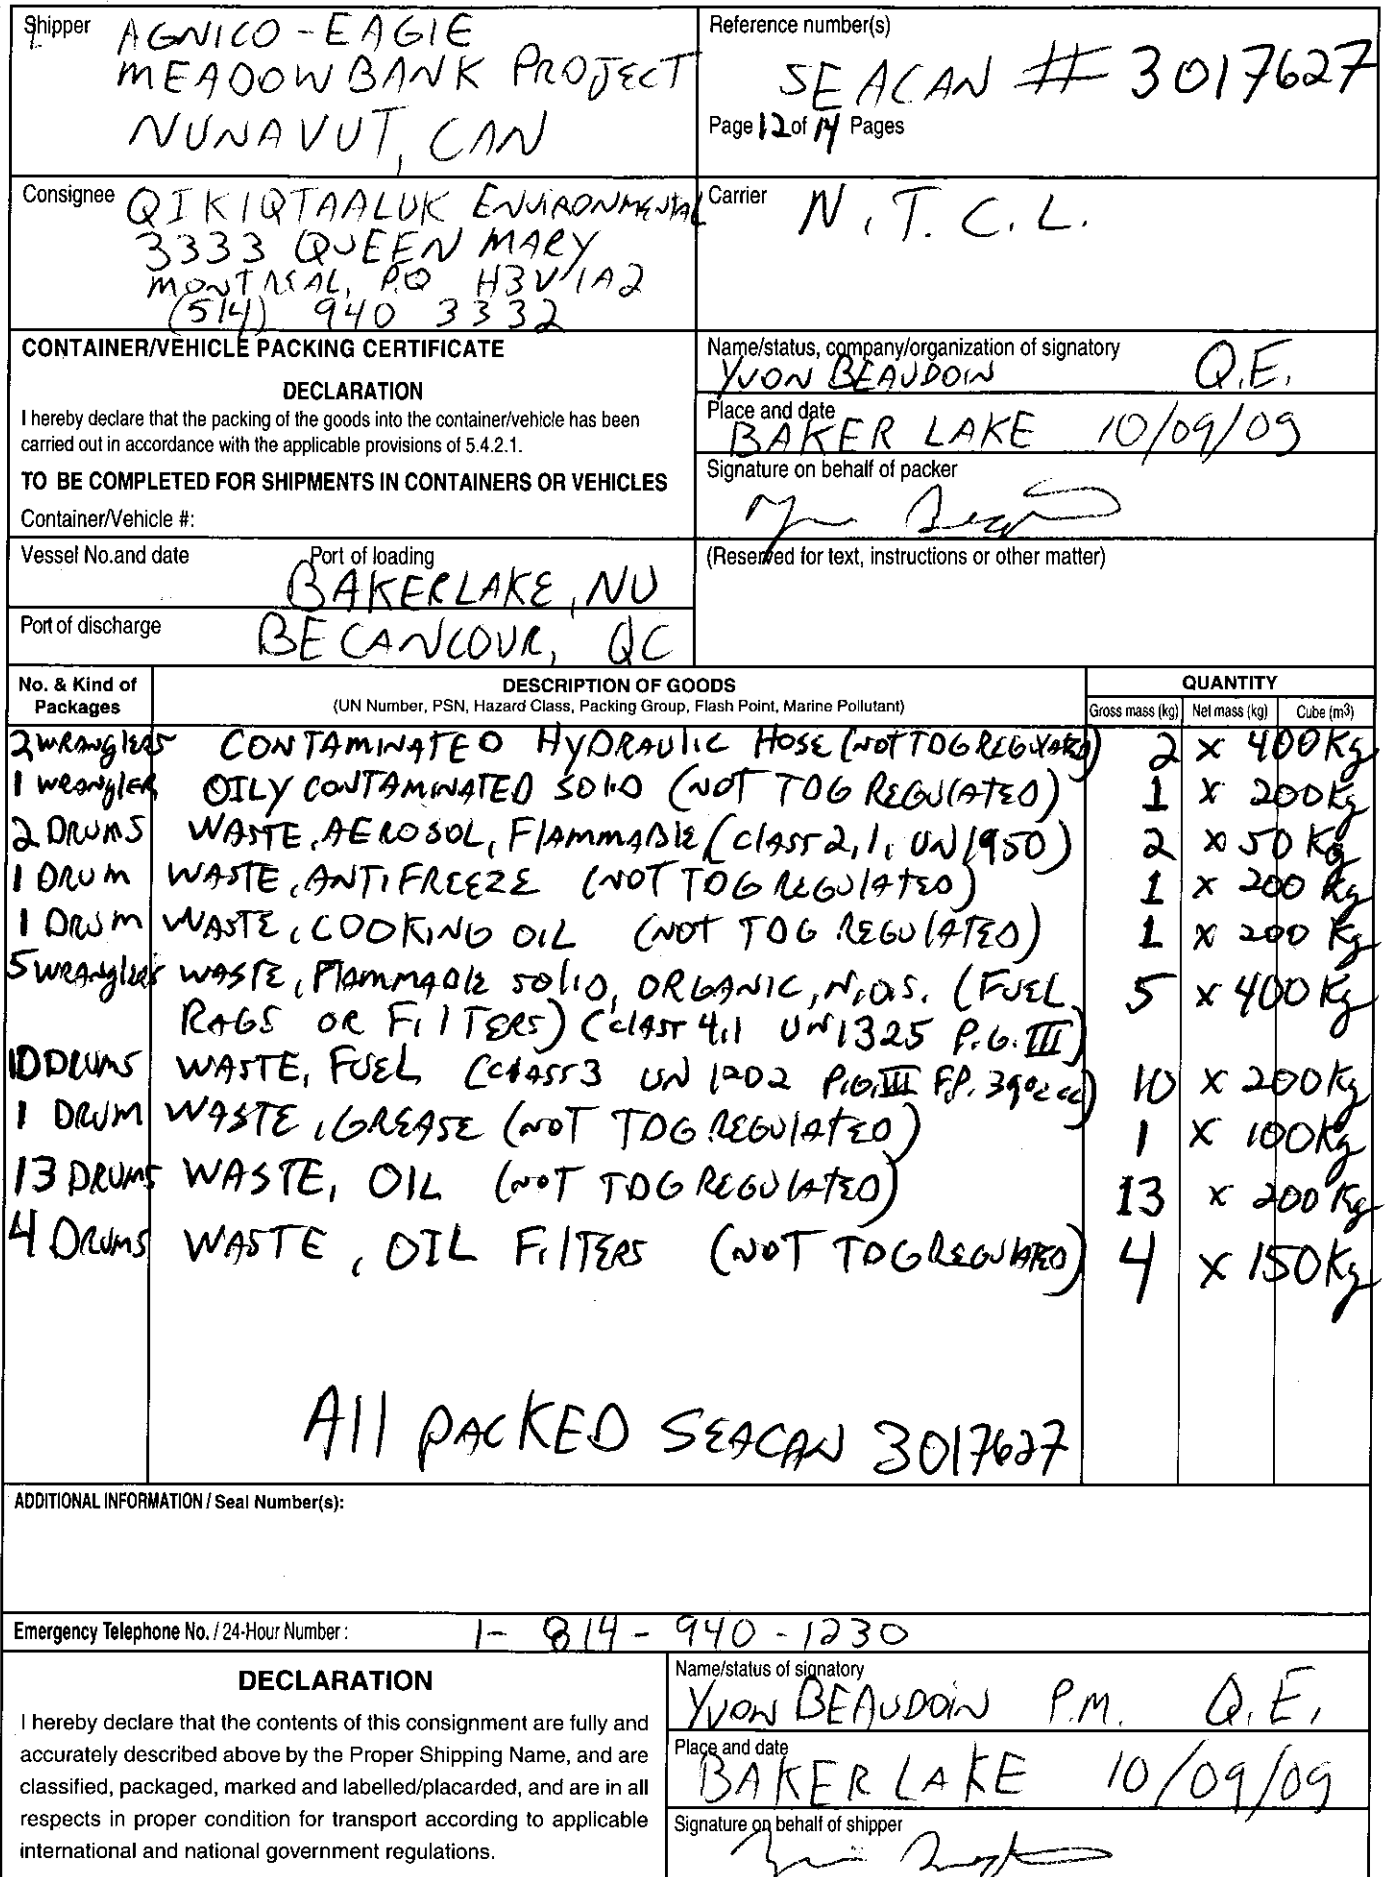 Shipper AGNICO-EAGlE
MEADOWBANK PROJECT
NUNAVUT, CAN
Reference number(s)
SEACAN # 3017627
Page 12 of 14 Pages
Consignee QIKIQTAALUK ENVIRONMENTAL
3333 QUEEN MARY
MONTREAL, PQ H3V 1A2
(514) 940 3332
Carrier N.T.C.L.
CONTAINER/VEHICLE PACKING CERTIFICATE
DECLARATION
I hereby declare that the packing of the goods into the container/vehicle has been
carried out in accordance with the applicable provisions of 5.4.2.1.
TO BE COMPLETED FOR SHIPMENTS IN CONTAINERS OR VEHICLES
Container/Vehicle #:
Name/status, company/organization of signatory
YVON BEAUDOIN Q.E.
Place and date
BAKER LAKE 10/09/09
Signature on behalf of packer
Vessel No.and date Port of loading
BAKERLAKE, NU
Port of discharge BECANCOUR, QC
(Reserved for text, instructions or other matter)
No. & Kind of Packages
DESCRIPTION OF GOODS
(UN Number, PSN, Hazard Class, Packing Group, Flash Point, Marine Pollutant)
QUANTITY
Gross mass (kg) Net mass (kg) Cube (m3)
2 WRANglERS CONTAMINATED HyDRAulIC HOSE (NOT TDG REGULATED) 2 x 400Kg
1 wRanglER OILY CONTAMINATED SOlID (NOT TDG REGUlATED) 1 x 200Kg
2 DRUMS WASTE, AEROSOL, FlAMMABlE (clASS 2,1, UN 1950) 2 x 50 Kg
1 DRUM WASTE, ANTIFREEZE (NOT TDG REGUlATED) 1 x 200 Kg
1 DRUM WASTE, COOKING OIL (NOT TDG REGUlATED) 1 x 200 Kg
5 WRANglERS WASTE, FlAMMABlE SOlID, ORGANIC, N.O.S. (FUEL 5 x 400 Kg
RAGS OR FIlTERS) (clASS 4,1 UN 1325 P.G. III)
10 DRUMS WASTE, FUEL (clASS 3 UN 1202 P.G. III F.P. 39°C cc) 10 x 200Kg
1 DRUM WASTE, GREASE (NOT TDG REGUlATED) 1 x 100Kg
13 DRUMS WASTE, OIL (NOT TDG REGUlATED) 13 x 200 Kg
4 DRUMS WASTE, OIL FIlTERS (NOT TDG REGUlATED) 4 x 150Kg
All PACKED SEACAN 3017627
ADDITIONAL INFORMATION / Seal Number(s):
Emergency Telephone No. / 24-Hour Number: 1-814-940-1230
DECLARATION
I hereby declare that the contents of this consignment are fully and
accurately described above by the Proper Shipping Name, and are
classified, packaged, marked and labelled/placarded, and are in all
respects in proper condition for transport according to applicable
international and national government regulations.
Name/status of signatory
YVON BEAUDOIN P.M. Q.E,
Place and date
BAKER LAKE 10/09/09
Signature on behalf of shipper